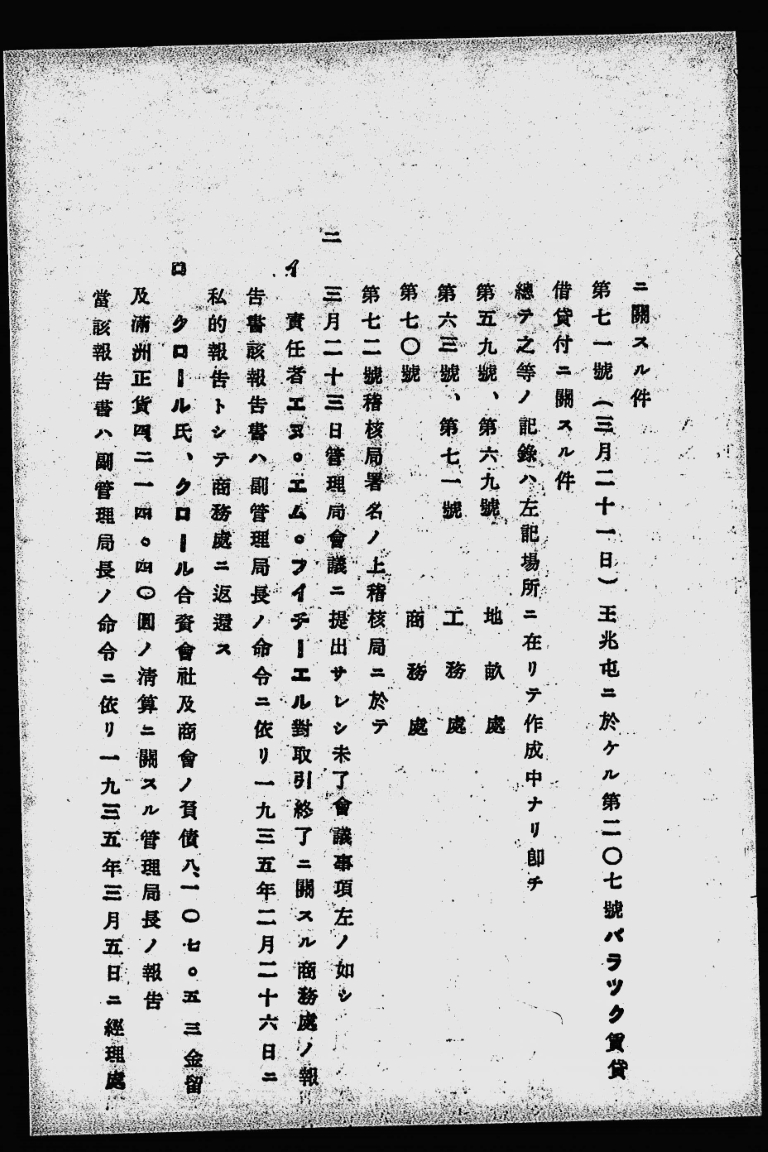 ニ關スル件
第七一號(三月二十一日)王兆屯ニ於ケル第二〇七號バラツク賃貸
借貸付ニ關スル件
總テ之等ノ記錄ハ左記場所ニ在リテ作成中ナリ卽チ
第五九號、第六九號 地畝處
第六三號、第七一號 工務處
第七〇號 商務處
第七二號稽核局署名ノ上稽核局ニ於テ
二 三月二十三日管理局會議ニ提出サレシ未了會議事項左ノ如シ
イ 責任者エヌ。エム。フイチーエル對取引終了ニ關スル商務處ノ報
告書該報告書ハ副管理局長ノ命令ニ依リ一九三五年二月二十六日ニ
私的報告トシテ商務處ニ返還ス
ロ クロール氏、クロール合資會社及商會ノ負債八、一〇七。五三金留
及滿洲正貨四、二一四。四〇圓ノ清算ニ關スル管理局長ノ報告
當該報告書ハ副管理局長ノ命令ニ依リ一九三五年三月五日ニ經理處